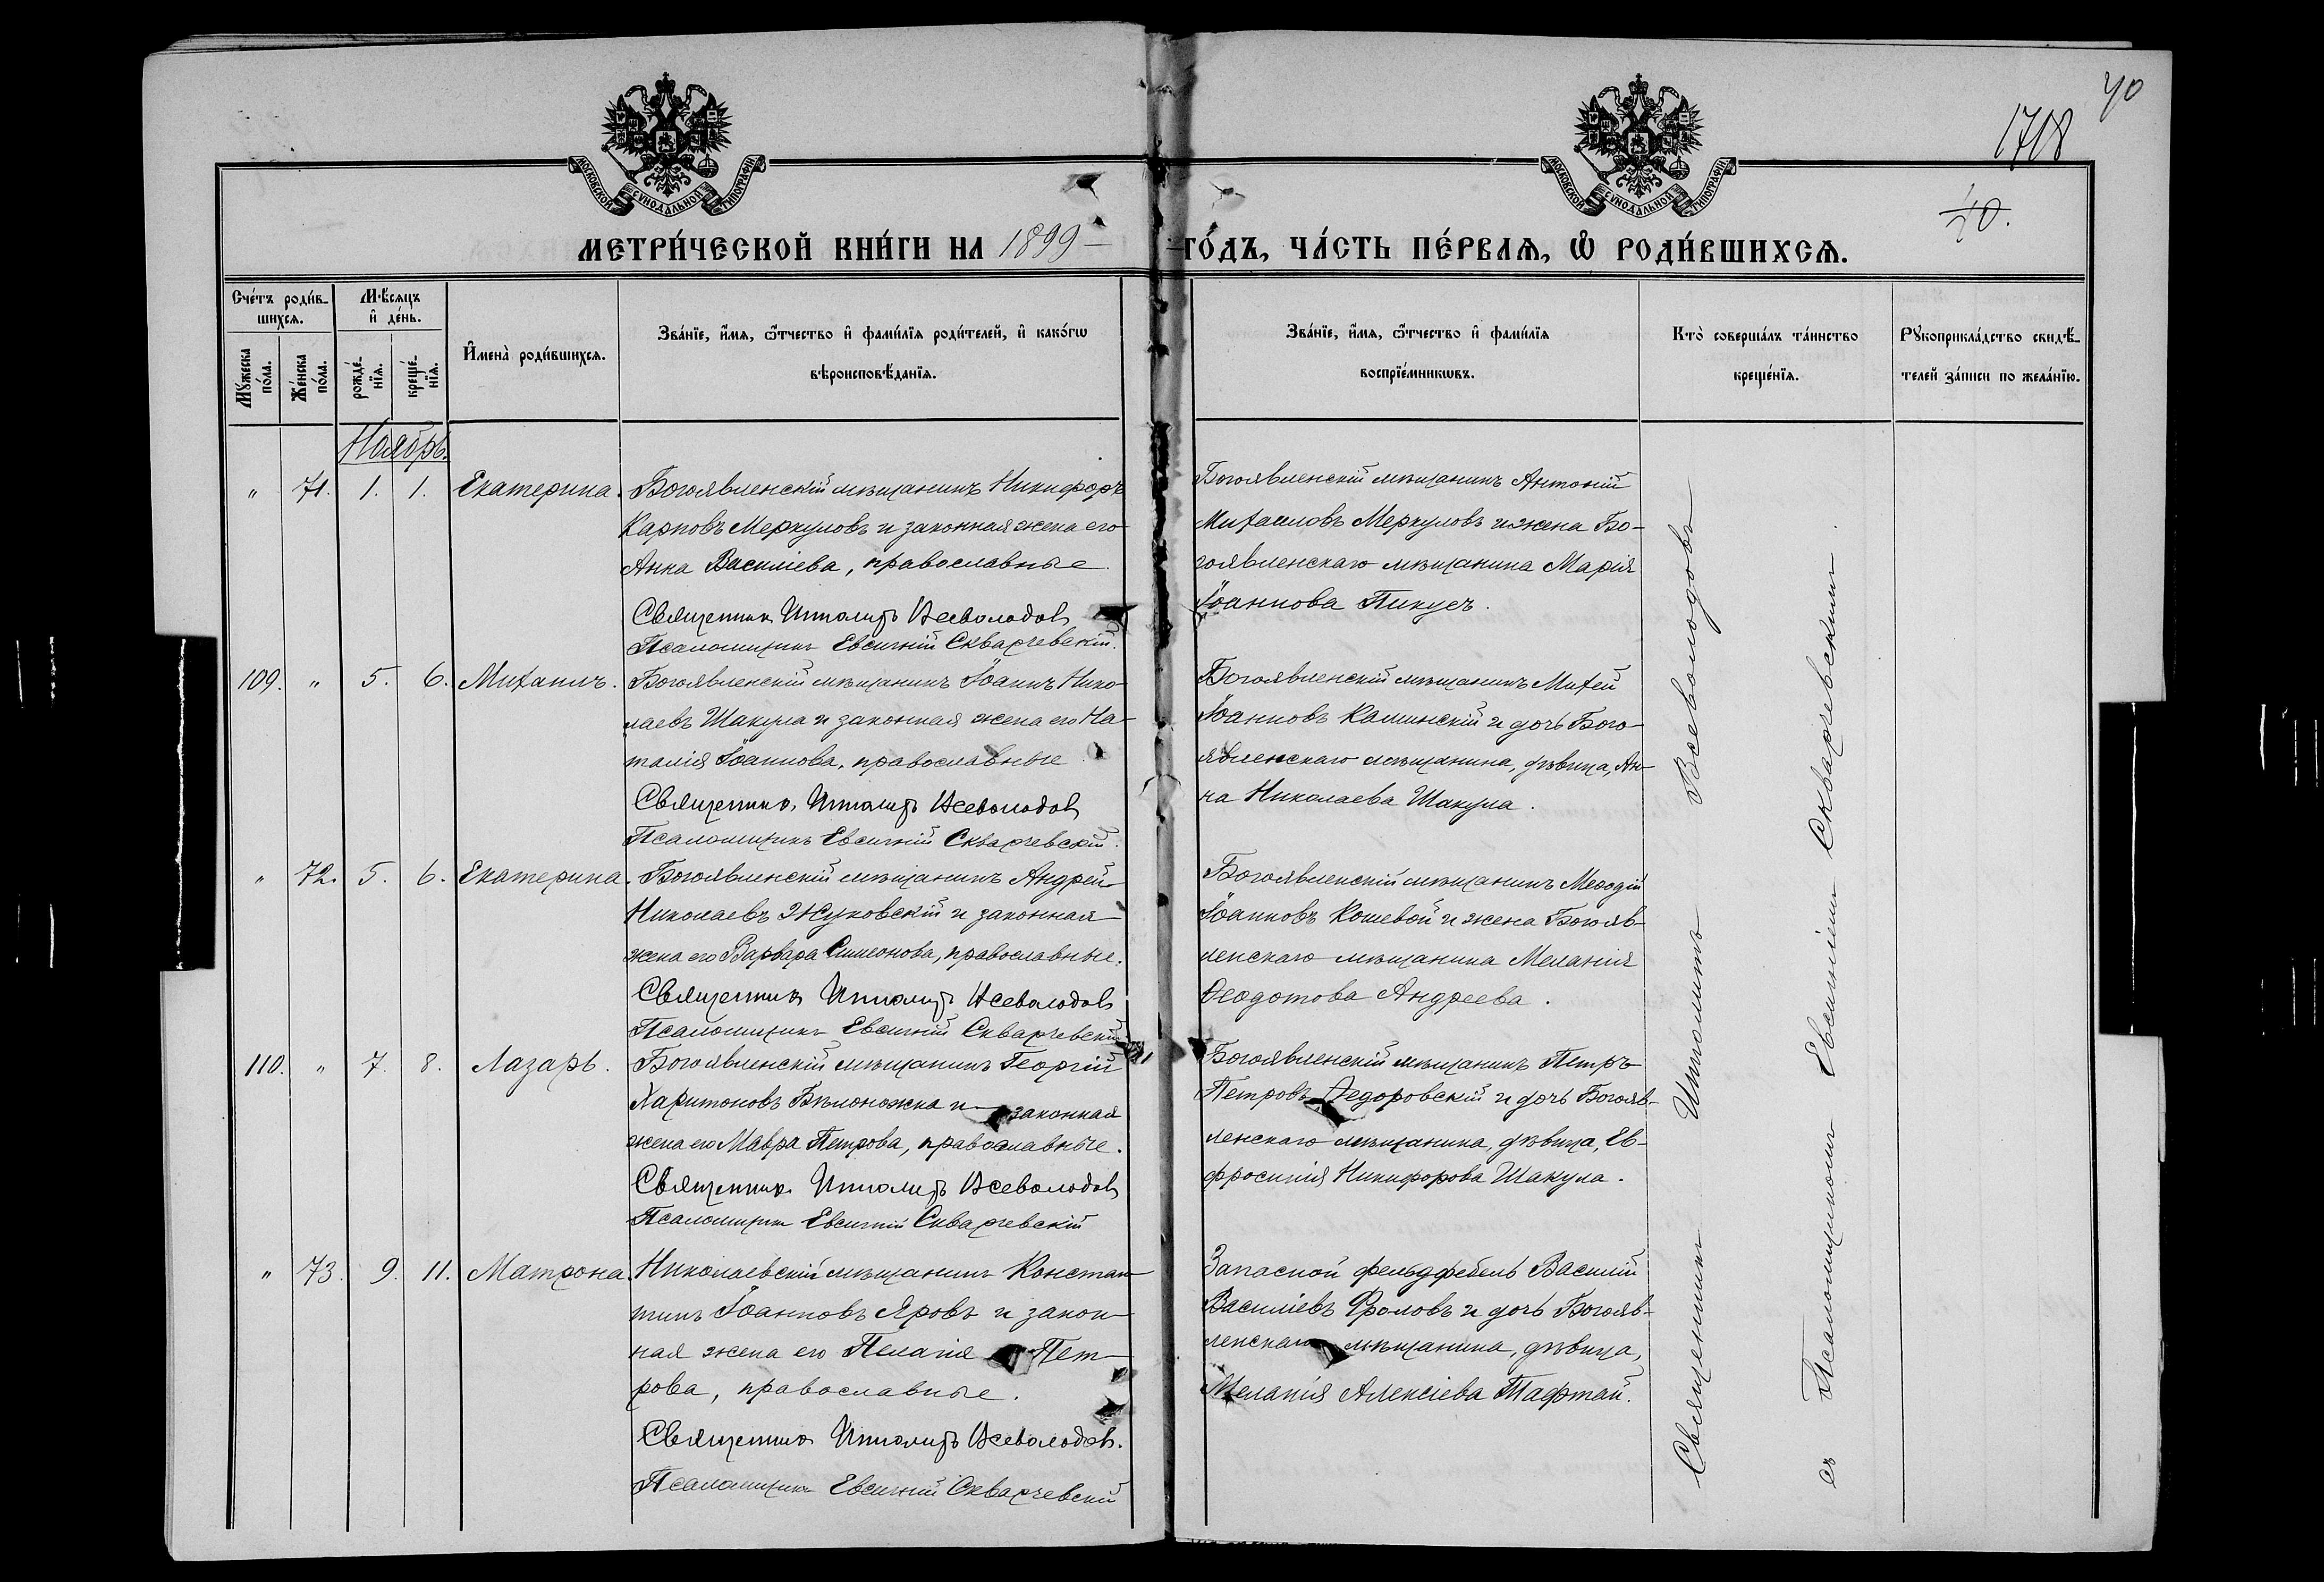 40
1718
40.
МОСКОВСКОЙ СѴНОДАЛЬНОЙ ТИПОГРАФІИ
МОСКОВСКОЙ СѴНОДАЛЬНОЙ ТИПОГРАФІИ
МЕТРИ́ЧЕСКОЙ КНИ́ГИ НА 1899 ГО́ДЪ, ЧА́СТЬ ПЕ́РВАѦ, Ѡ РОДИ́ВШИХСѦ.
Сче́тъ роди́вшихсѧ.
Мꙋ́жеска по́ла.
Же́нска по́ла.
Мѣ́сѧцъ и҆ де́нь.
рожде́нїѧ.
креще́нїѧ.
И҆мена̀ роди́вшихсѧ.
Зва́нїе, и҆́мѧ, ѻ҆́тчество и҆ фами́лїѧ роди́телей, и҆ како́гѡ
вѣроисповѣ́данїѧ.
Зва́нїе, и҆́мѧ, ѻ҆́тчество и҆ фами́лїѧ
воспрїе́мникѡвъ.
Кто̀ соверша́лъ та́инство
креще́нїѧ.
Рꙋкоприкла́дство свидѣ́-
телей за́писи по жела́нїю.
Ноябрь.
" 71. 1. 1. Екатерина. Богоявленскій мѣщанинъ Никифоръ
Карповъ Меркуловъ и законная жена его
Анна Василіева, православные.
Священник Ипполитъ Всеволодовъ
Псаломщикъ Евсигній Скварчевскій.
Богоявленскій мѣщанинъ Антоній
Михаиловъ Меркуловъ и жена Бо-
гоявленскаго мѣщанина Марія
Іоаннова Пикусъ.
109. " 5. 6. Михаилъ. Богоявленскій мѣщанинъ Іоаннъ Нико-
лаевъ Шакула и законная жена его На-
талія Іоаннова, православные.
Священникъ Ипполитъ Всеволодовъ
Псаломщикъ Евсигній Скварчевскій.
Богоявленскій мѣщанинъ Михей
Іоанновъ Каминскій и дочь Бого-
явленскаго мѣщанина, дѣвица, Ан-
на Николаева Шакула.
" 72. 5. 6. Екатерина. Богоявленскій мѣщанинъ Андрей
Николаевъ Жуковскій и законная
жена его Варвара Симеонова, православные.
Священникъ Ипполитъ Всеволодовъ
Псаломщикъ Евсигній Скварчевскій
Богоявленскій мѣщанинъ Меѳодій
Іоанновъ Кошевой и жена Богояв-
ленскаго мѣщанина Меланія
Ѳеодотова Андреева.
110. " 7. 8. Лазарь. Богоявленскій мѣщанинъ Георгій
Харитоновъ Бѣлоножка и законная
жена его Мавра Петрова, православные.
Священникъ Ипполитъ Всеволодовъ
Псаломщикъ Евсигній Скварчевскій
Богоявленскій мѣщанинъ Петръ
Петровъ Ѳедоровскій и дочь Богояв-
ленскаго мѣщанина, дѣвица, Ев-
фросинія Никифорова Шакула.
" 73. 9. 11. Матрона. Николаевскій мѣщанинъ Констан-
тинъ Іоанновъ Яровъ и закон-
ная жена его Пелагія Пет-
рова, православные.
Священникъ Ипполитъ Всеволодовъ.
Псаломщикъ Евсигній Скварчевскій
Запасной фельдфебель Василій
Василіевъ Фроловъ и дочь Богояв-
ленскаго мѣщанина, дѣвица,
Меланія Алексіева Тафтай.
Священникъ Ипполитъ Всеволодовъ
съ Псаломщикомъ Евсигніемъ Скварчевскимъ.